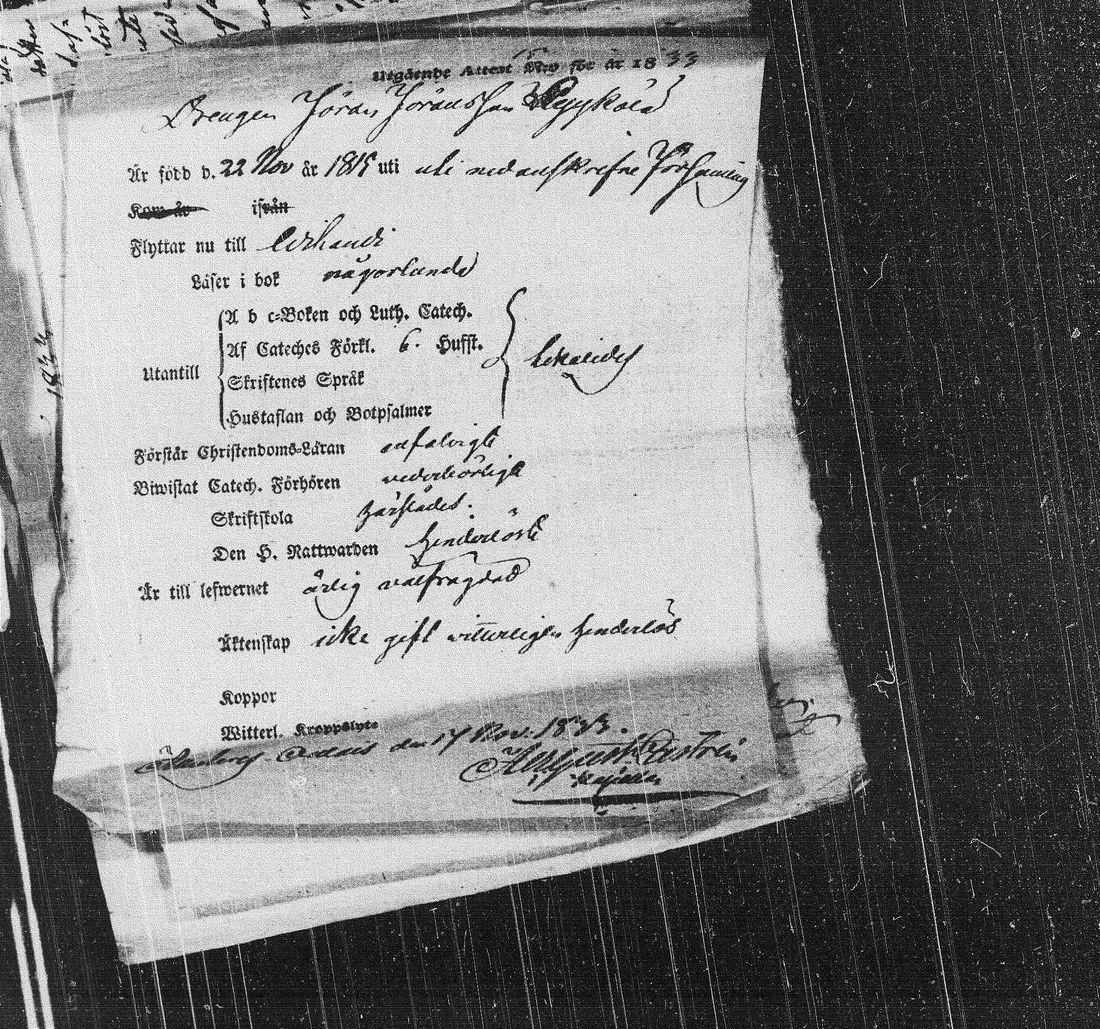 Utgående Attest N:o för år 1833
Drengen Jöran Jöransson
Är född d. 22 Nov år 1815 uti uti nedanskrefne Församling
Kom år ifrån
Flyttar nu till
Läser i bok någorlunda
A b c-Boken och Luth. Catech.
Af Cateches Förkl. 6. Hufst.
Utantill
Skriftenes Språk
Hustaflan och Botpsalmer
Förstår Christendoms-Läran enfaldigt
Biwistat Catech. Förhören vederbörligt
Skriftskola härstädes.
Den H. Nattwarden hinderlöst
Är till lefwernet ärlig välfrägdad
Äktenskap icke gift vitterligen hinderlös
Koppor
Witterl. Kroppslyte
den 17 Nov. 1833.